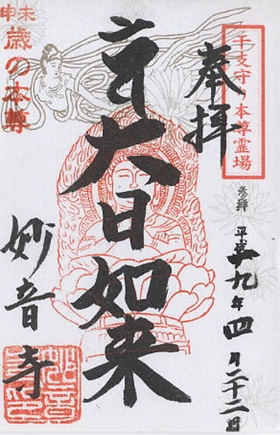 干支守り本尊霊場
奉拝
参拝 平成十九年四月二十二日
大日如来
未申
歳の本尊
妙音寺